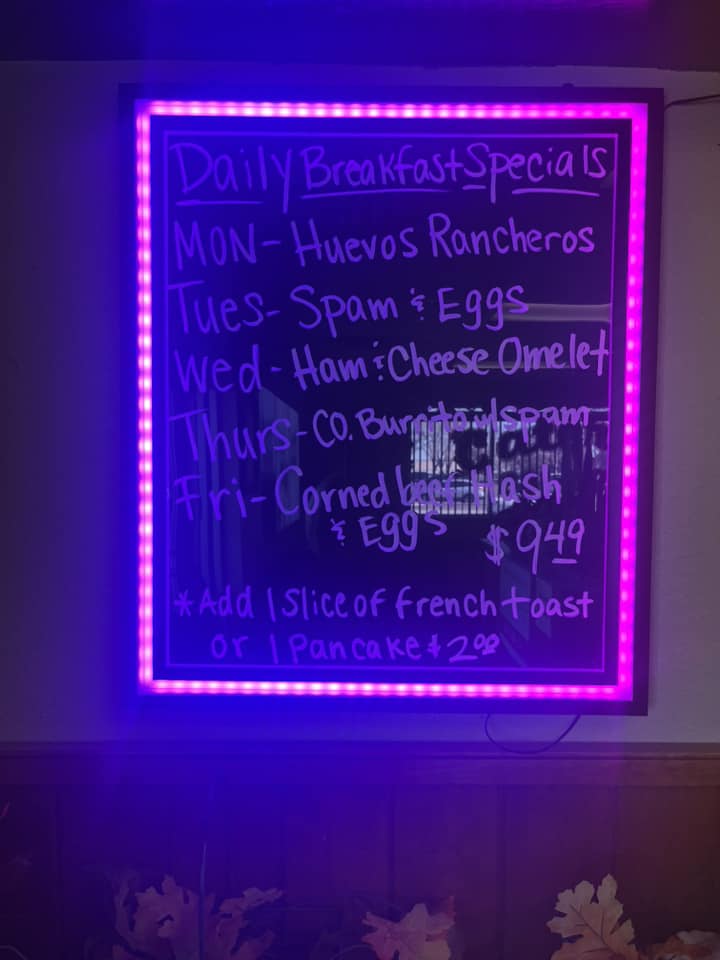 Daily Breakfast Specials
MON- Huevos Rancheros
Tues- Spam & Eggs
Wed- Ham & Cheese Omelet
Thurs- CO. Burrito w/spam
Fri- Corned beef Hash
& Eggs $9.49
*Add 1 Slice of french toast
or 1 pancake $2.00